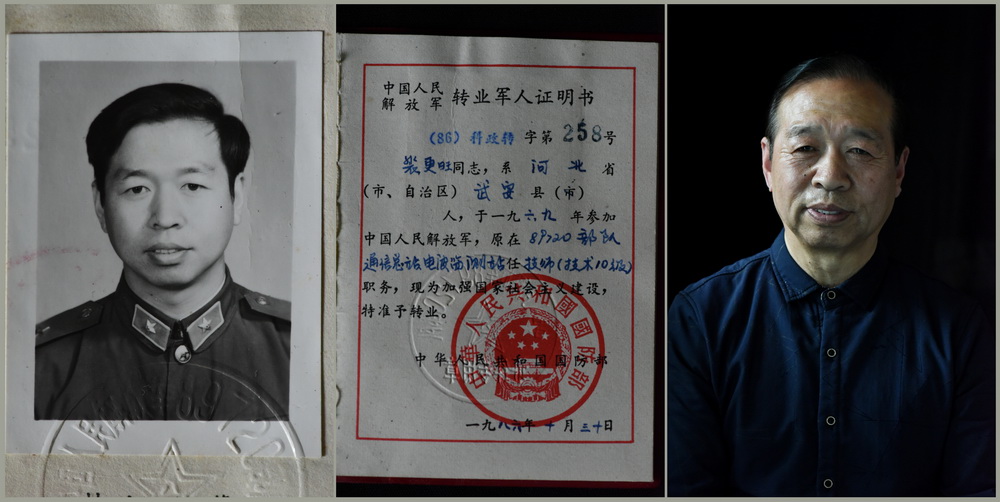 中国人民
解放军 转业军人证明书
(86) 科政转 字第 258号
裴更旺同志，系 河 北 省
(市、自治区) 武安 县 (市)
人，于一九六九 年参加
中国人民解放军，原在 89720 部队
通信总站电波监测站任 技师(技术10级)
职务，现为加强国家社会主义建设，
特准予转业。
中华人民共和国国防部
中华人民共和国国防部
一九八六年 十月 三十日